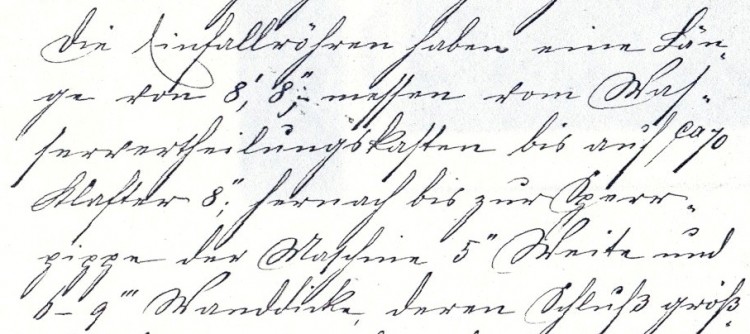 Die Einfallröhren haben eine Län-
ge von 8', 8"; messen vom Was-
servertheilungskasten bis auf ca 70
Klafter 8", hernach bis zur Sperr-
pippe der Maschine 5" Weite und
8 – 9''' Wanddicke, deren Schluß größ